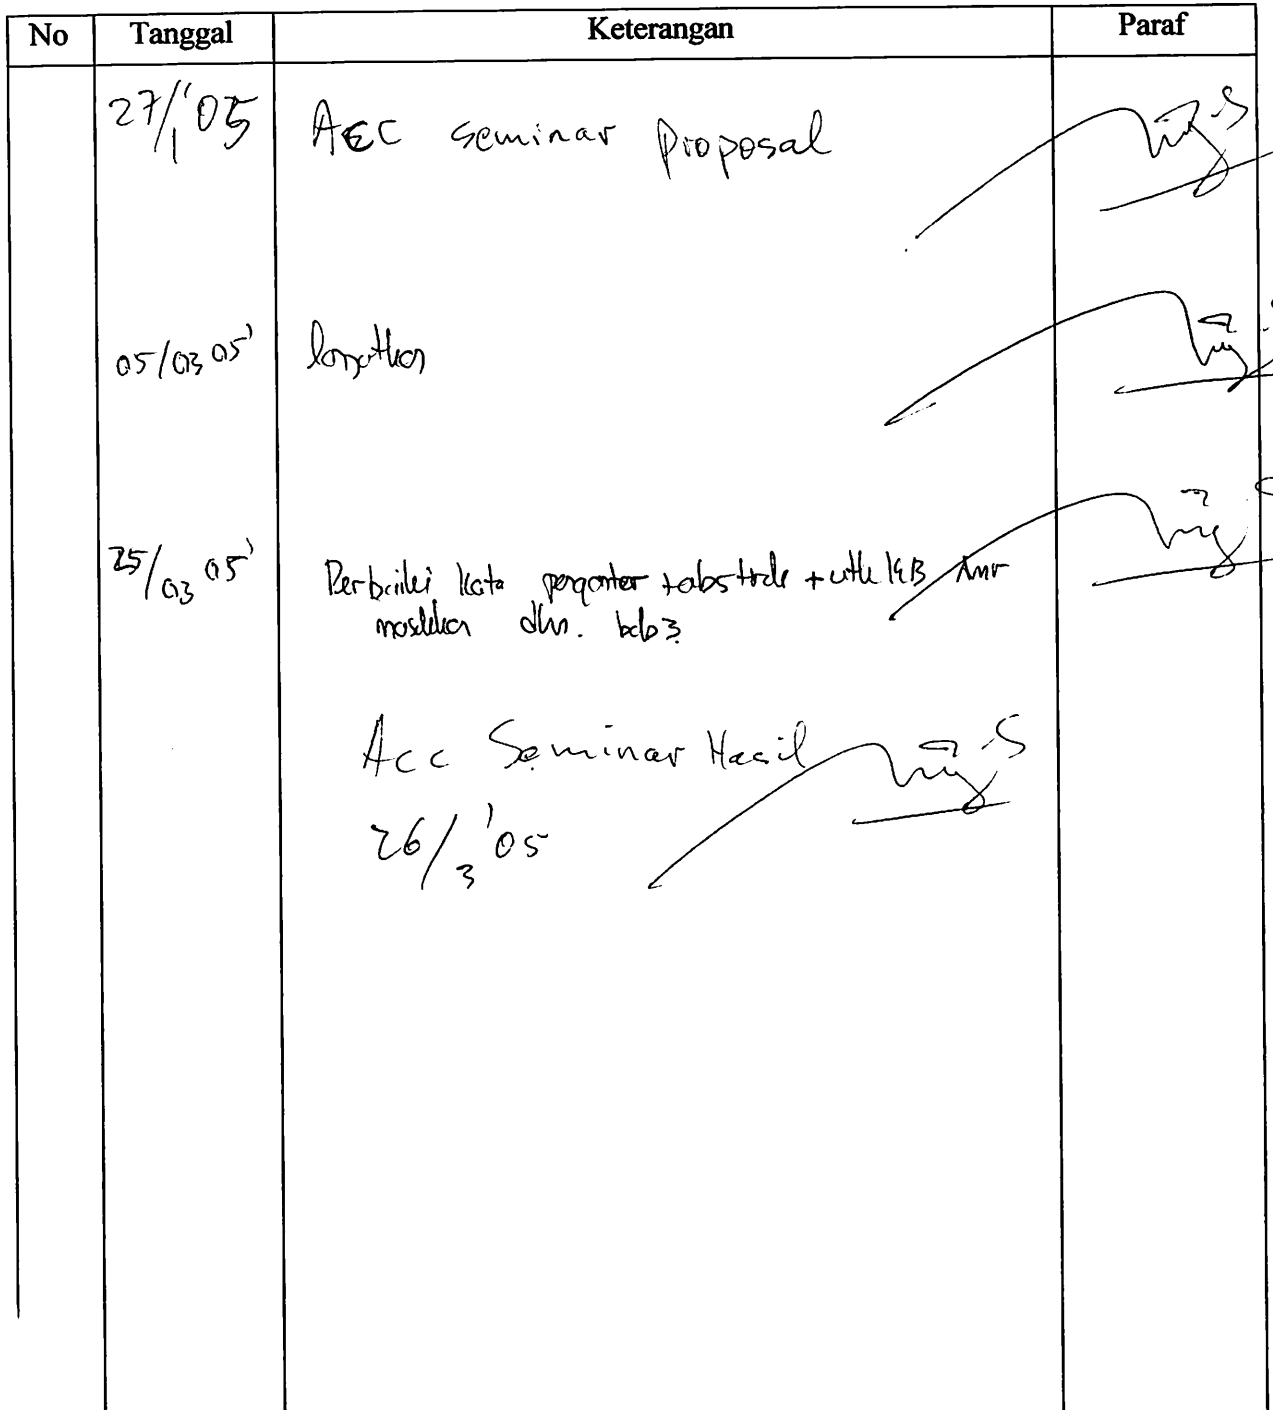 No Tanggal Keterangan Paraf
27/1 '05 Acc seminar Proposal
05/03 05' lanjutkan
25/03 05' Perbaiki kata pengantar + abstrak + utk
masukkan dlm. bab 3
Acc Seminar Hasil
26/3 '05